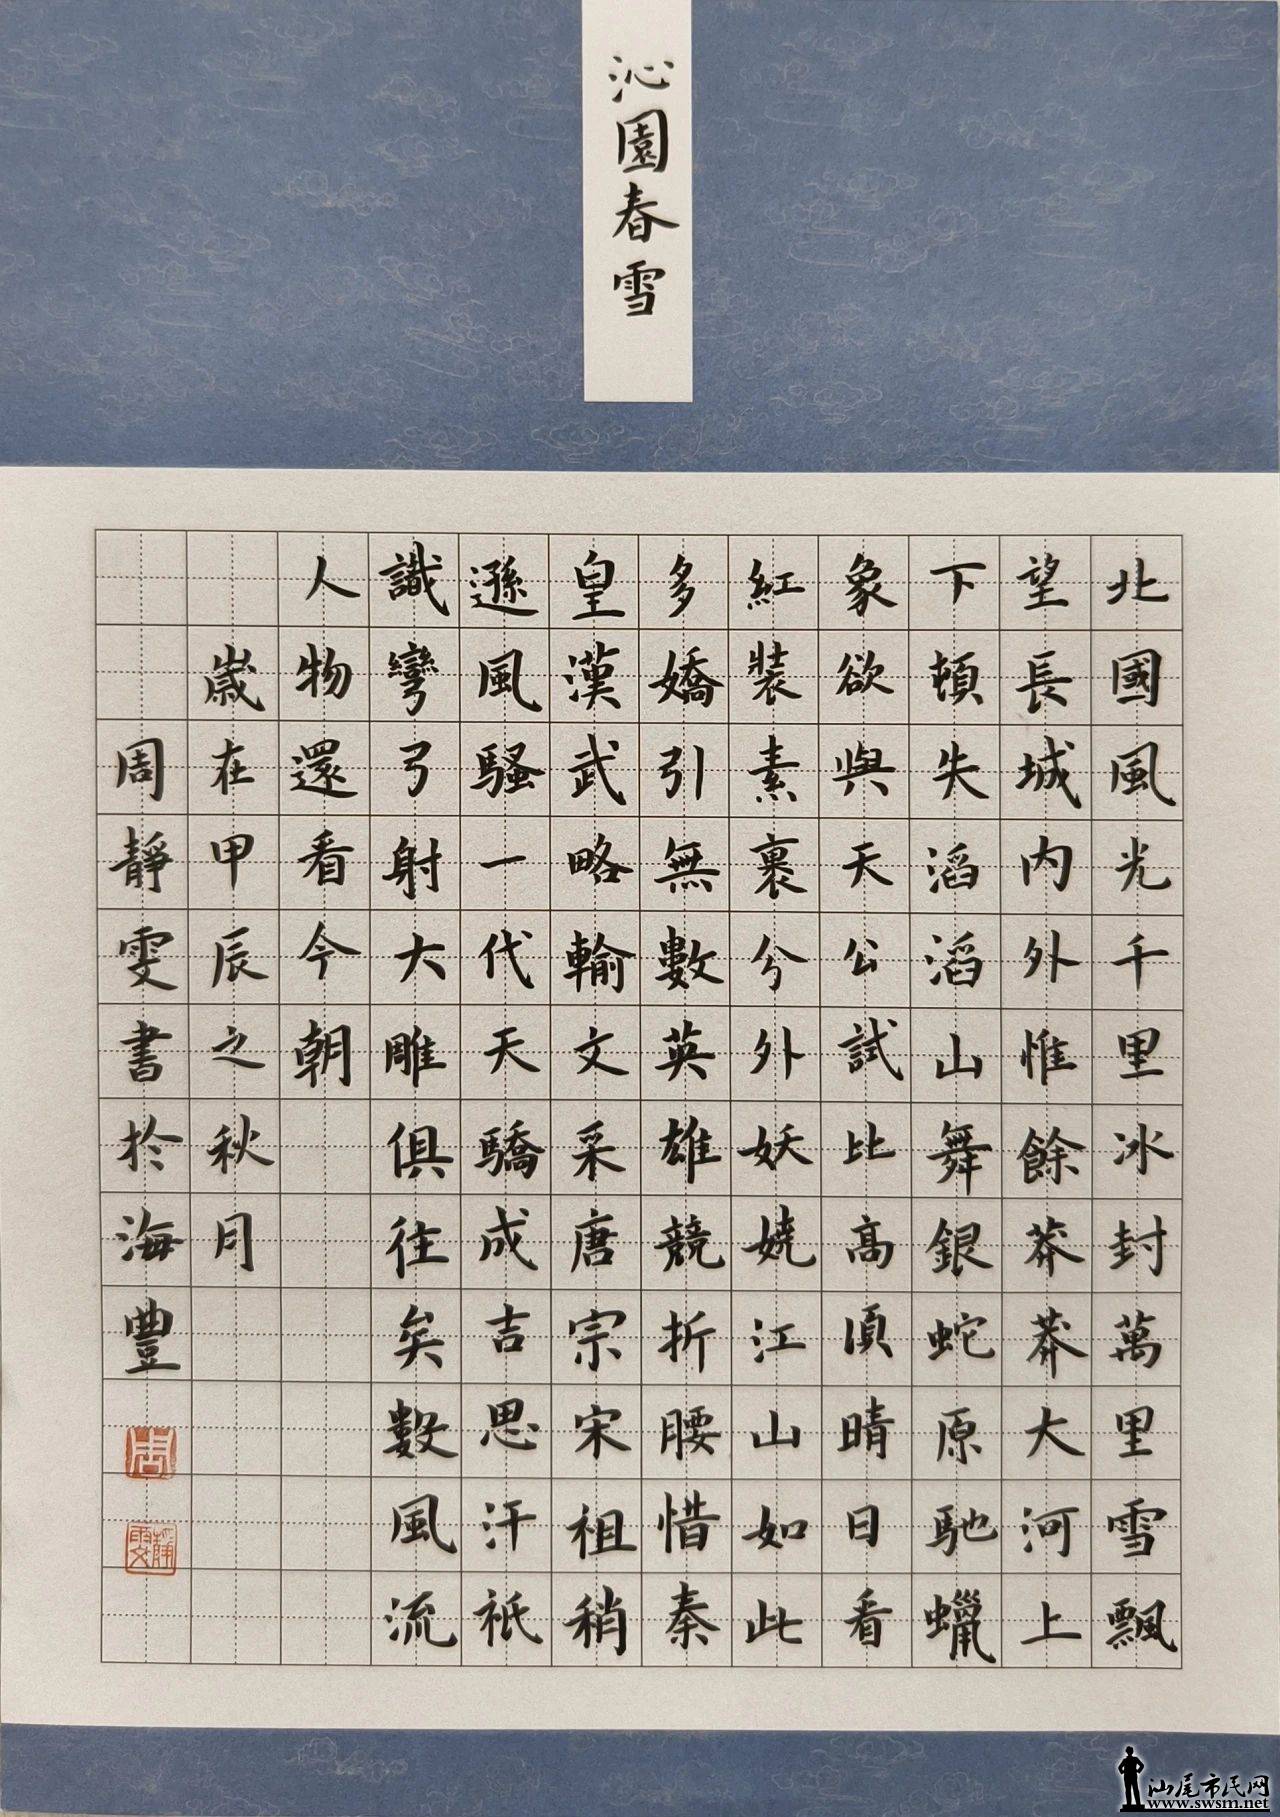 沁園春雪
北國風光千里冰封萬里雪飄
望長城内外惟餘莽莽大河上
下頓失滔滔山舞銀蛇原馳蠟
象欲與天公試比高須晴日看
紅裝素裹分外妖娆江山如此
多嬌引無數英雄競折腰惜秦
皇漢武略輸文采唐宗宋祖稍
遜風騷一代天驕成吉思汗祇
識彎弓射大雕俱往矣數風流
人物還看今朝
歲在甲辰之秋月
周靜雯書於海豐
周
靜雯
汕尾市民网
www.swsm.net